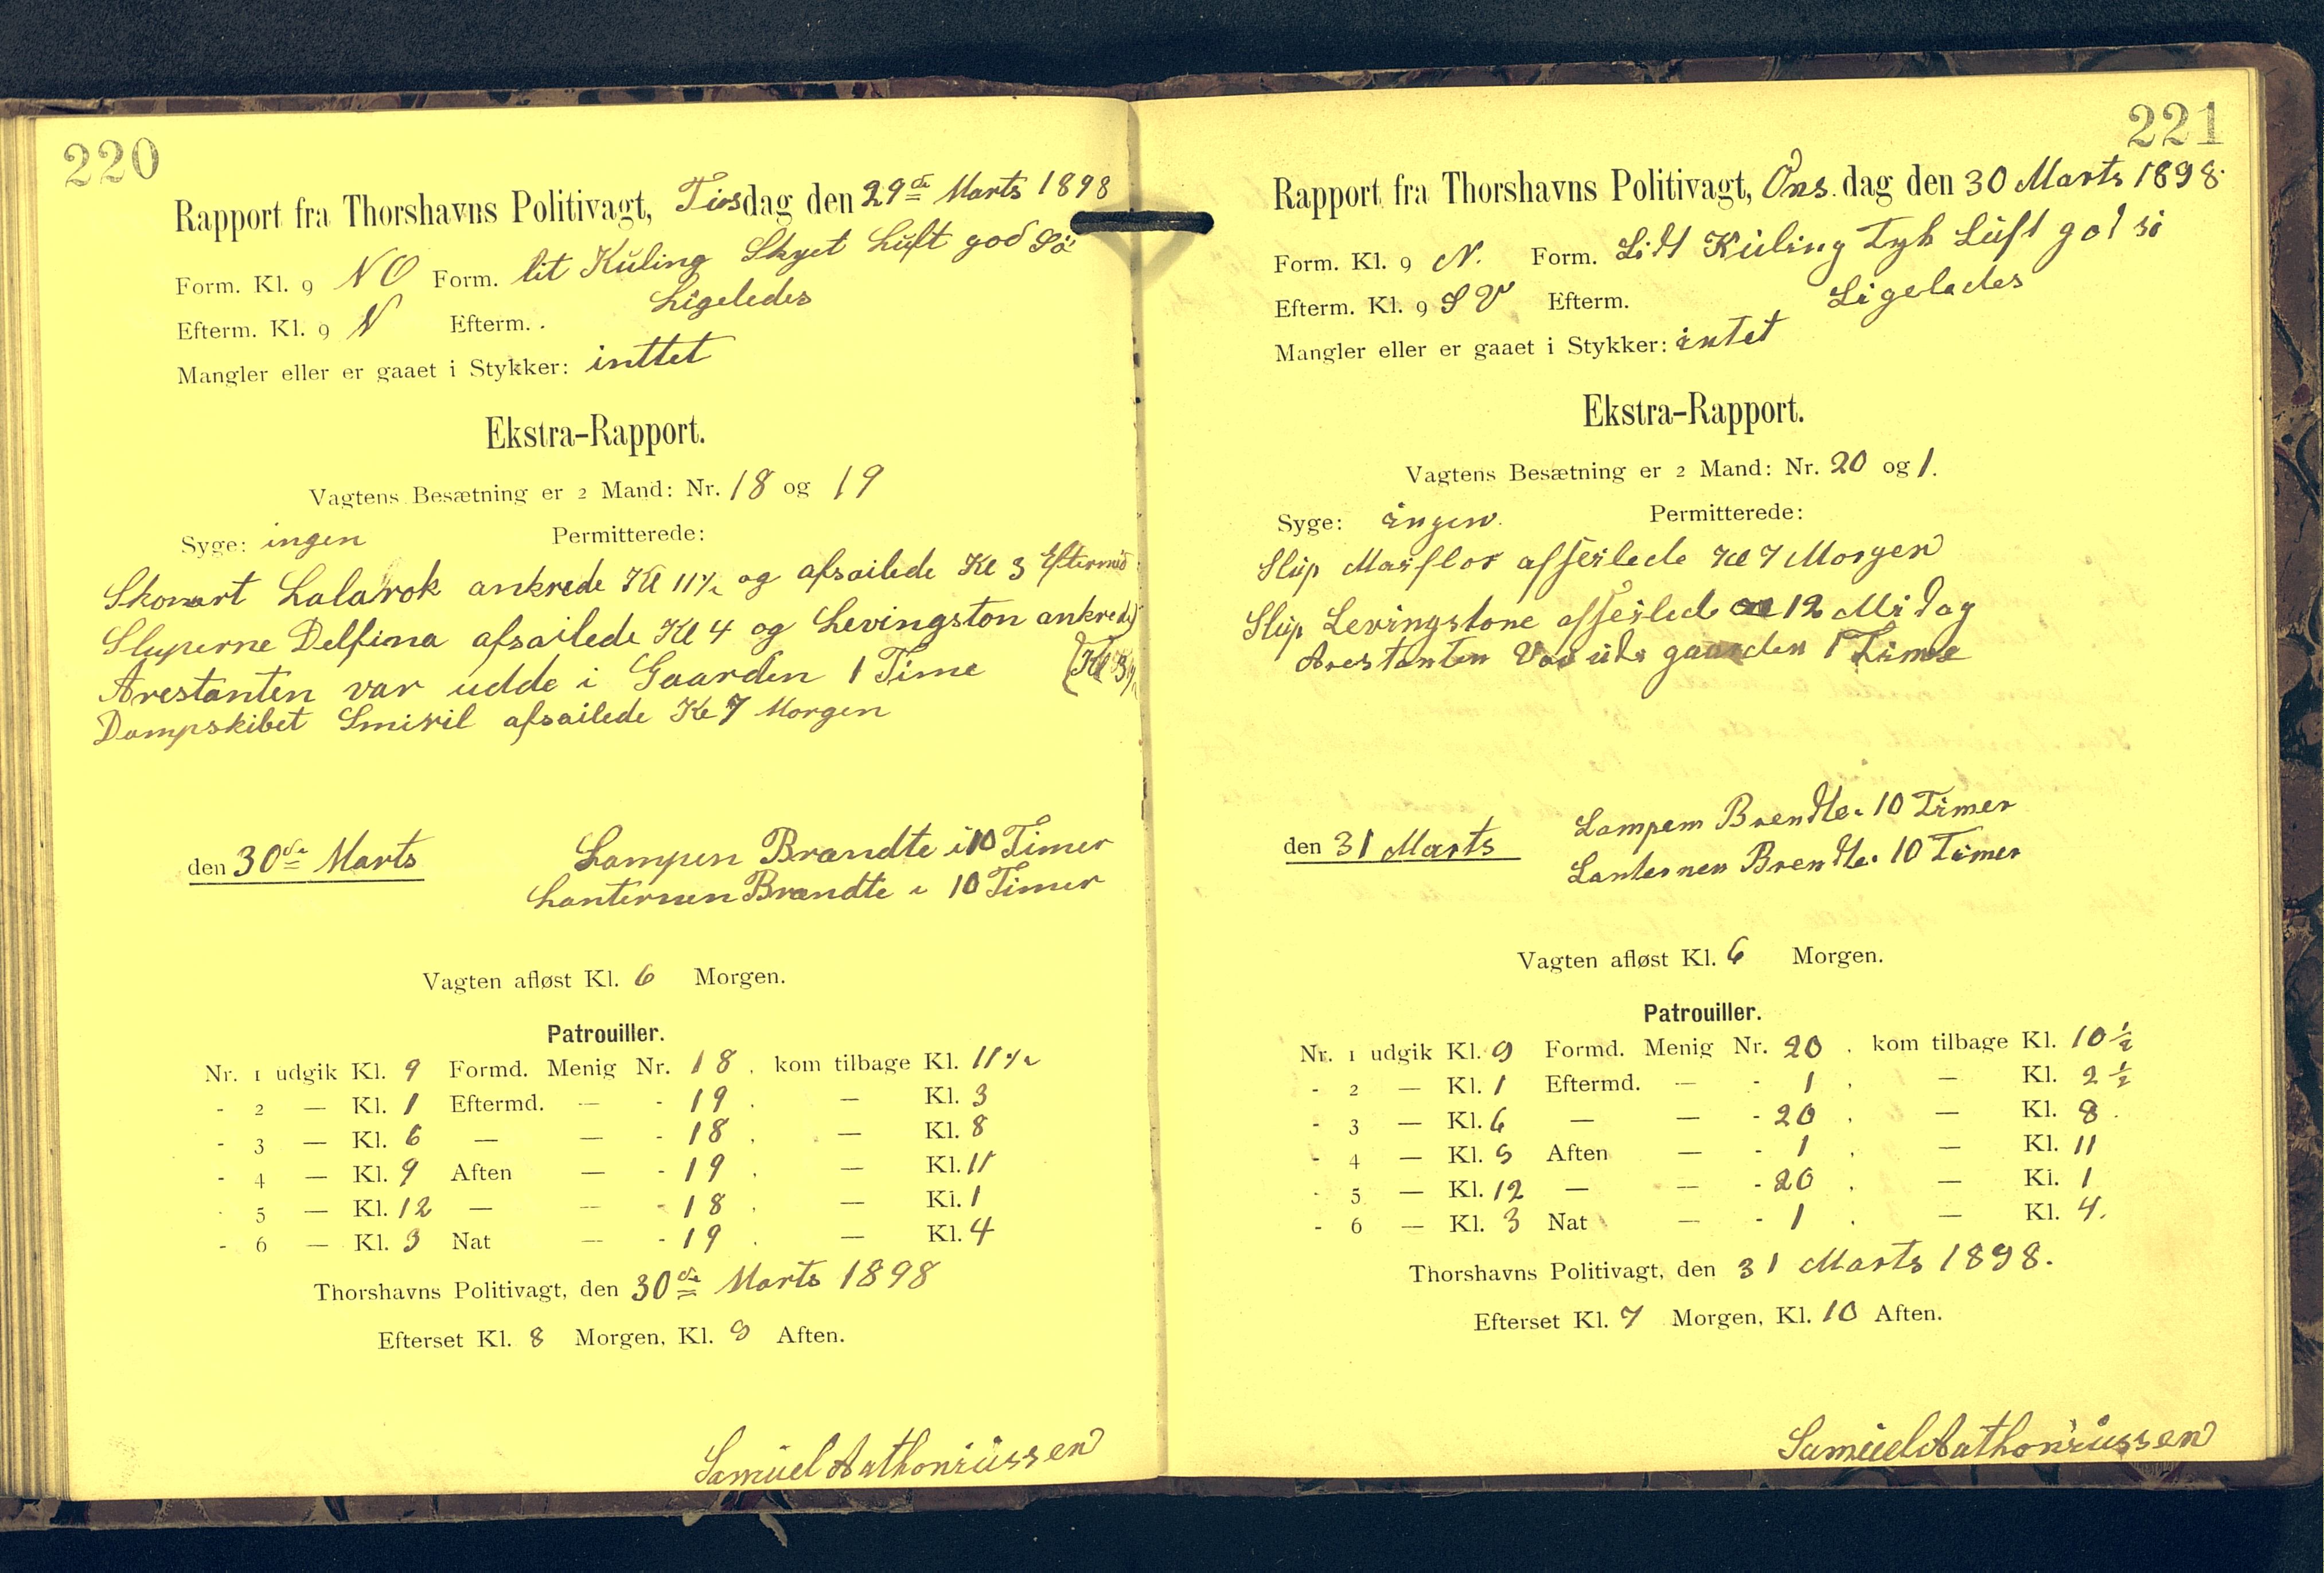 220
Rapport fra Thorshavns Politivagt, Tirsdag den 29de Marts 1898
Form. Kl. 9 NO Form. lit Kuling Skyet Luft god Sö
Efterm. Kl. 9 N Efterm. Ligeledes
Mangler eller er gaaet i Stykker: inttet
Ekstra-Rapport.
Vagtens Besætning er 2 Mand: Nr. 18 og 19
Syge: ingen Permitterede:
Skonart Lalarok ankrede Kl 11½ og afsailede Kl 3 Eftermid
Sluperne Delfina afsailede Kl 4 og Levingston ankrede
Arestanten var udde i Gaarden 1 Time (Kl 3½
Dampskibet Smiril afsailede Kl 7 Morgen
den 30de Marts Lampen Brændte i 10 Timer
Lanternen Brændte i 10 Timer
Vagten afløst Kl. 6 Morgen.
Patrouiller.
Nr. 1 udgik Kl. 9 Formd. Menig Nr. 18, kom tilbage Kl. 11½
- 2 — Kl. 1 Eftermd. — - 19, — Kl. 3
- 3 — Kl. 6 — — - 18, — Kl. 8
- 4 — Kl. 9 Aften — - 19, — Kl. 11
- 5 — Kl. 12 — — - 18, — Kl. 1
- 6 — Kl. 3 Nat — - 19, — Kl. 4
Thorshavns Politivagt, den 30de Marts 1898
Efterset Kl. 8 Morgen, Kl. 9 Aften.
Samúel Aathoniússen
221
Rapport fra Thorshavns Politivagt, Ons.dag den 30 Marts 1898.
Form. Kl. 9 N. Form. Lidt Kúling Tyk Lúft god sö
Efterm. Kl. 9 SV Efterm. Ligelades
Mangler eller er gaaet i Stykker: intet
Ekstra-Rapport.
Vagtens Besætning er 2 Mand: Nr. 20 og 1.
Syge: ingen. Permitterede:
Slúp Marflor afseilede Kl 7 Morgen
Slúp Levingstone afseiled 12 Midag
Arestanten Var úde gaarden 1 Time
den 31 Marts Lampem Brendte. 10 Timer
Lanternen Brendte. 10 Timer
Vagten afløst Kl. 6 Morgen.
Patrouiller.
Nr. 1 udgik Kl. 9 Formd. Menig Nr. 20, kom tilbage Kl. 10½
- 2 — Kl. 1 Eftermd. — - 1, — Kl. 2½
- 3 — Kl. 6 — — - 20, — Kl. 8.
- 4 — Kl. 9 Aften — - 1, — Kl. 11
- 5 — Kl. 12 — — - 20, — Kl. 1
- 6 — Kl. 3 Nat — - 1, — Kl. 4.
Thorshavns Politivagt, den 31 Marts 1898.
Efterset Kl. 7 Morgen, Kl. 10 Aften.
Samúel Aathoniússen